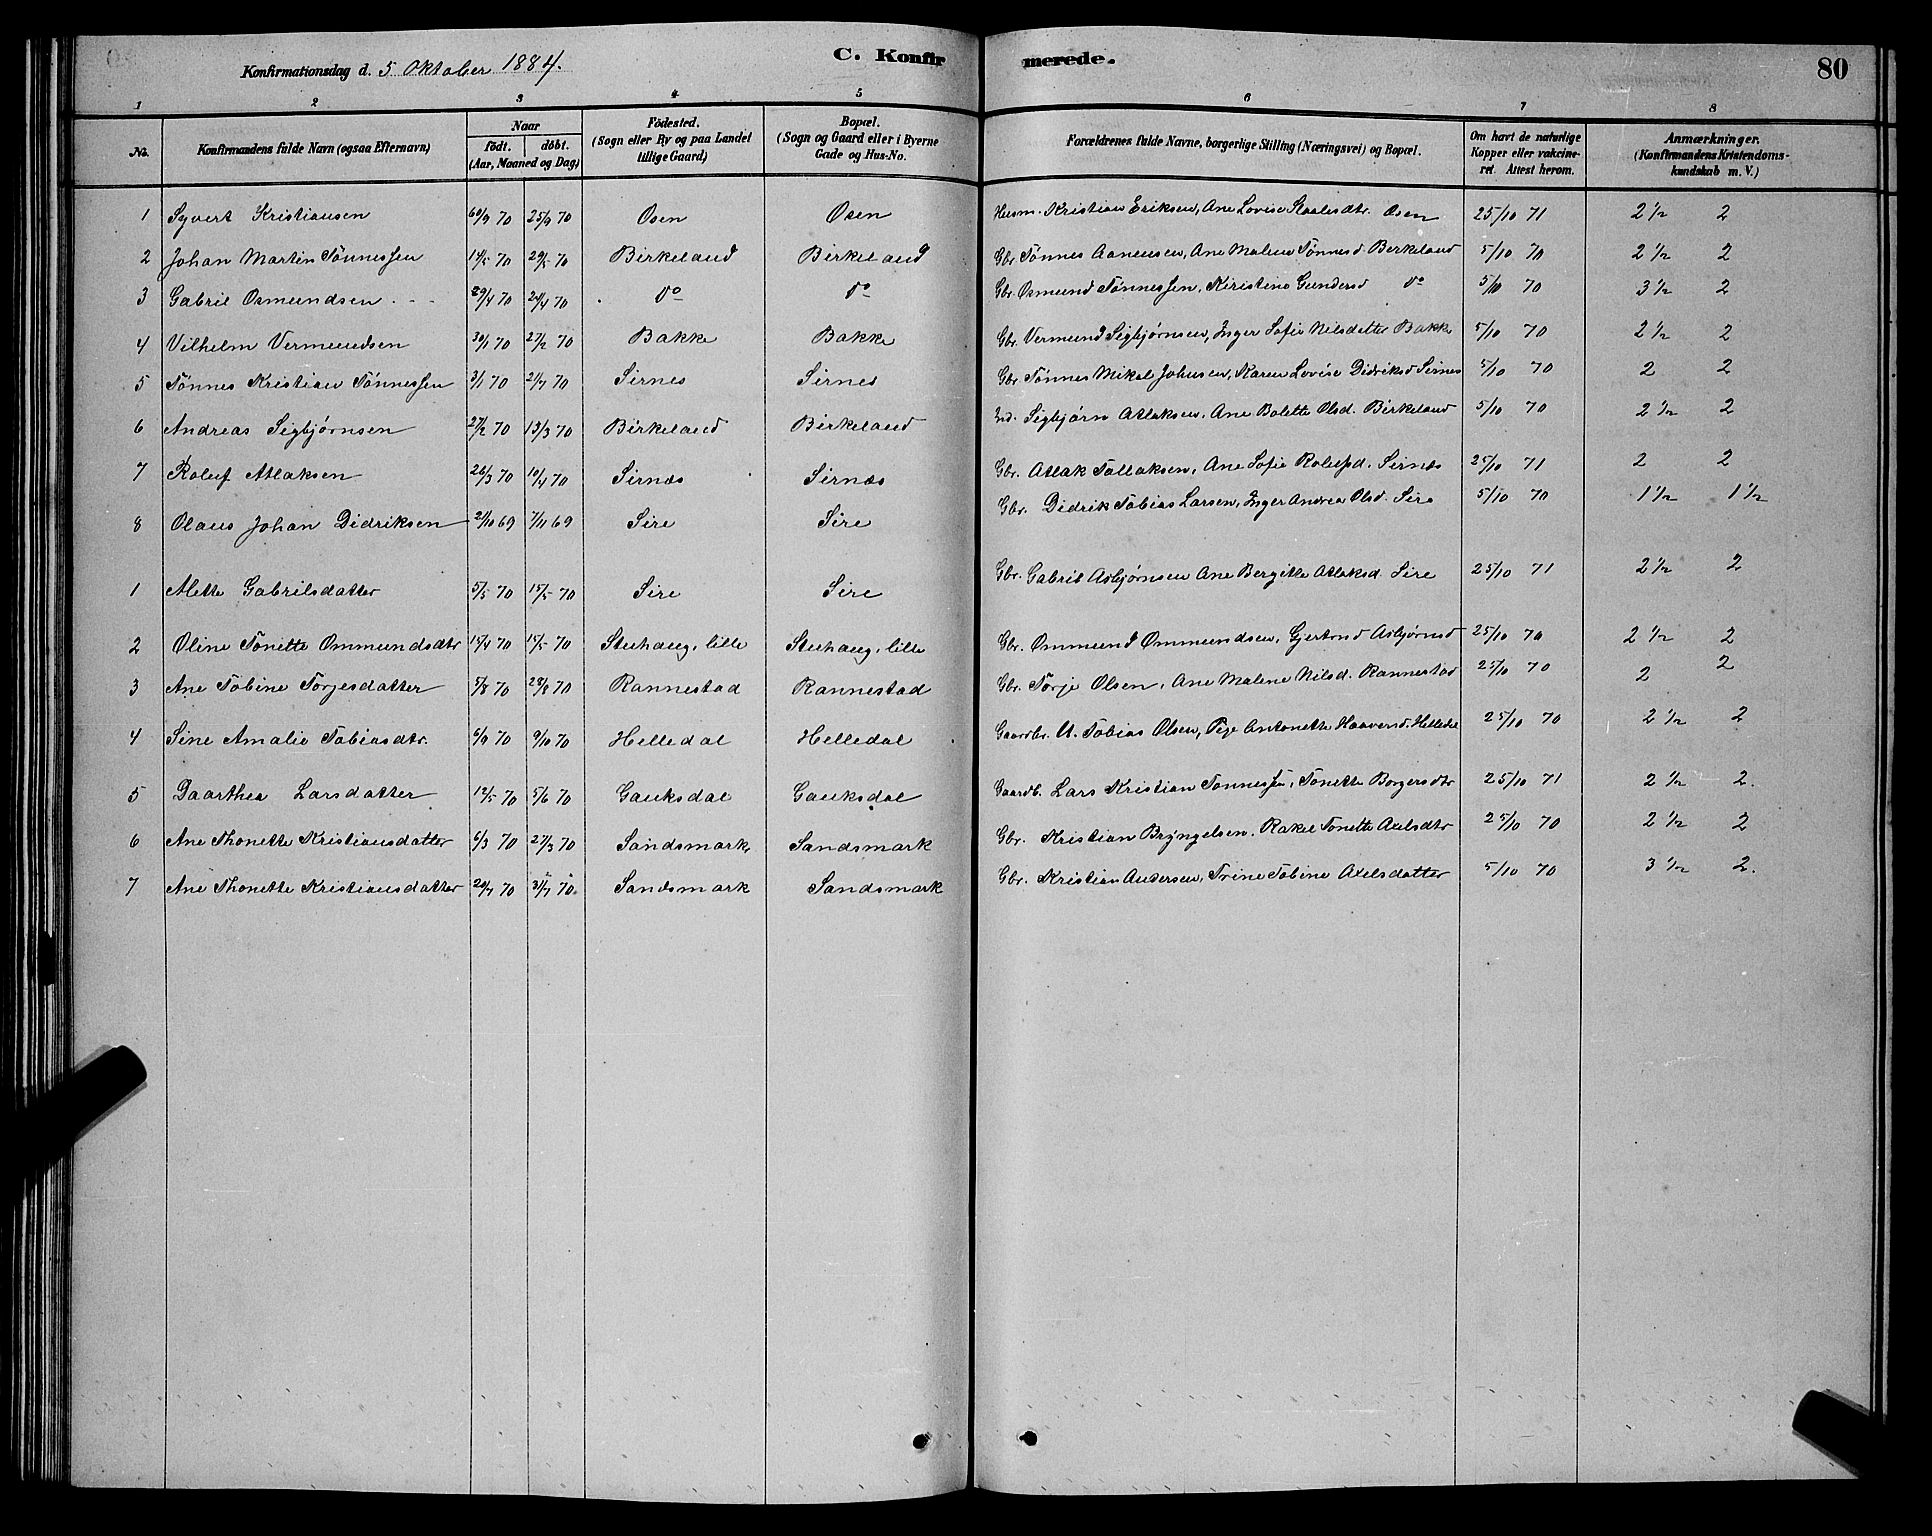 Konfirmationsdag d. 5 Oktober 1884.
C. Konfirmerede.
80
1 2 3 4 5 6 7 8
No.
Konfirmandens fulde Navn (ogsaa Efternavn)
Naar
födt. döbt.
(Aar, Maaned og Dag)
Födested.
(Sogn eller By og paa Landet
tillige Gaard)
Bopæl.
(Sogn og Gaard eller i Byerne
Gade og Hus-No.
Forældrenes fulde Navne, borgerlige Stilling (Næringsvei) og Bopæl.
Om havt de naturlige
Kopper eller vakcine-
ret. Attest herom.
Anmærkninger.
(Konfirmandens Kristendoms-
kundskab m. V.)
1 Syvert Kristiansen 70 25/9 70 Osen Osen Husm. Kristian Eriksen, Ane Lovise Staalesdtr. Osen 25/10 71 2 1/2 2
2 Johan Martin Tönnessen 14/5 70 29/5 70 Birkeland Birkeland Gbr. Tönnes Aanensen, Ane Malene Tönnesd Berkeland 5/10 70 2 1/2 2
3 Gabriel Osmundsen 29/4 70 24/4 70 do do Gbr. Osmund Tönnessen, Kiristine Gundersd do 5/10 70 3 1/2 2
4 Vilhelm Vermundsen 30/1 70 27/2 70 Bakke Bakke Gbr. Vermund Sigbjörnsen, Inger Sofie Nilsdatter Bakke 5/10 70 2 1/2 2
5 Tönnes Kristian Tönnessen 3/1 70 70 Sirnes Sirnes Gbr Tönnes Mikal Johnsen, Karen Lovise Didriksd Sirnes 5/10 70 2 2
6 Andreas Sigbjørnsen 27/2 70 13/3 70 Birkeland Birkeland Ind. Sigbjørn Atlaksen, Ane Bolette Olsd. Birkeland 5/10 70 2 1/2 2
7 Roluf Atlaksen 26/3 70 10/4 70 Sirnæs Sirnæs Gbr. Atlak Tallaksen, Ane Sofie Rolufsd. Sirnæs 25/10 71 2 2
8 Olaus Johan Didriksen 21/10 69 7/11 69 Sire Sire Gbr. Didrik Tobias Larsen, Inger Andrea Olsd. Sire 5/10 70 1 1/2 1 1/2
1 Alette Gabrielsdatter 5/5 70 15/5 70 Sire Sire Gbr. Gabriel Asbjørnsen Ane Bergitte Atlaksd. Sire 25/10 71 2 1/2 2
2 Oline Tonette Ommundsdtr 15/4 70 15/5 70 Stuhaug, lille Stuhaug, lille Gbr. Ommund Ommundsen, Gjertrud Asbjørnsd 25/10 70 2 1/2 2
3 Ane Tobine Torjesdatter 5/8 70 28/8 70 Rannestad Rannestad Gbr. Torje Olsen, Ane Malene Nilsd. Rannestad 25/10 70 2 2
4 Sine Amalie Tobiasdtr. 6/9 70 9/10 70 Helledal Helledal Gaardbr. U. Tobias Olsen, Pige Antonette Haavorsd. Helledal 25/10 70 2 1/2 2
5 Daarthea Larsdatter 12/5 70 5/6 70 Gauksdal Gauksdal Gaardb. Lars Kristian Tonnessen, Tonette Borgersdtr 25/10 71 2 1/2 2.
6 Ane Thonette Kristiansdatter 6/3 70 27/3 70 Sandsmark Sandsmark Gbr. Kristian Bryngelsen. Rakel Tonette Axelsdtr 25/10 70 2 1/2 2
7 Ane Thonette Kristiansdatter 20/7 70 31/7 70. Sandsmark Sandsmark Gbr. Kristian Andersen, Trine Tobine Axelsdatter 5/10 70 3 1/2 2.